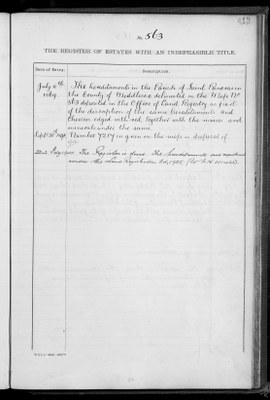 No. 563
THE REGISTER OF ESTATES WITH AN INDEFEASIBLE TITLE.
Date of Entry.
Description.
July
The hereditaments in the Parish of Saint Pancras in
the County of Middlesex delineated in the Map No
563 deposited in the Office of Land Registry as part
of the description of the same hereditaments and
thereon edged with red, together with the mines and
minerals under the same.
Number 7259 is given on the map in
The Register is closed. The hereditaments are registered
under the Land Registration Act, 1925